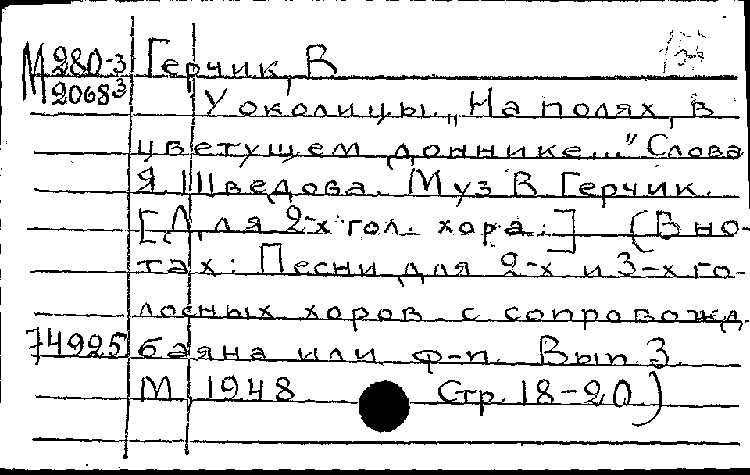 М 280-3 Герчик, В
М 2068³ У околицы. „На полях, в
цветущем доннике..." Слова
Я. Шведова. Муз В Герчик.
[Для 2-х гол. хора.] (В но-
тах: Песни для 2-х и 3-х го-
лосных хоров с сопровожд.
74925 баяна или ф-п. Вып 3.
М 1948 Стр. 18-20)